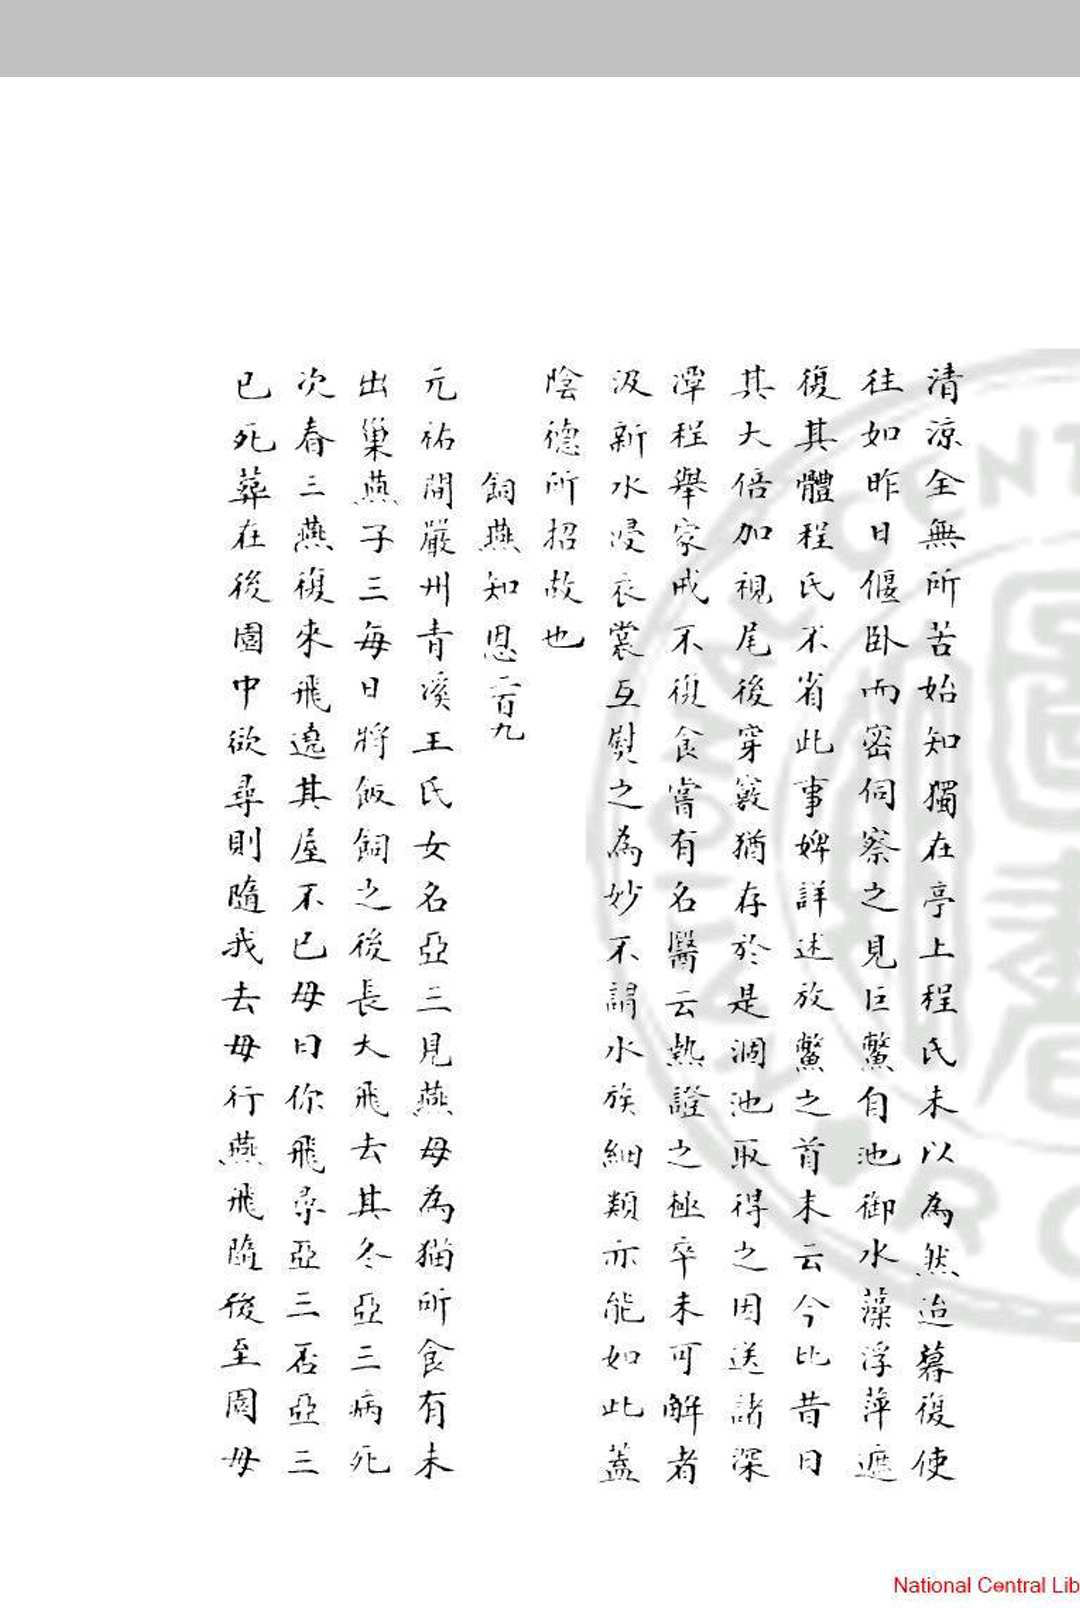 清涼全無所苦始知獨在亭上程氏未以為然迨暮復使
往如昨日偃臥而密伺察之見巨鱉自池御水藻浮萍遮
復其體程氏不省此事婢詳述放鱉之首末云今比昔日
其大倍加視尾後穿竅猶存於是涸池取得之因送諸深
潭程舉家戒不復食嘗有名醫云熱證之極卒未可解者
汲新水浸衣裳互熨之為妙不謂水族細類亦能如此蓋
陰德所招故也
飼燕知恩二百九
元祐間嚴州青溪王氏女名亞三見燕母為猫所食有未
出巢燕子三每日將飯飼之後長大飛去其冬亞三病死
次春三燕復來飛遶其屋不已母曰你飛尋亞三否亞三
已死葬在後園中欲尋則隨我去母行燕飛隨後至園母
National Central Lib